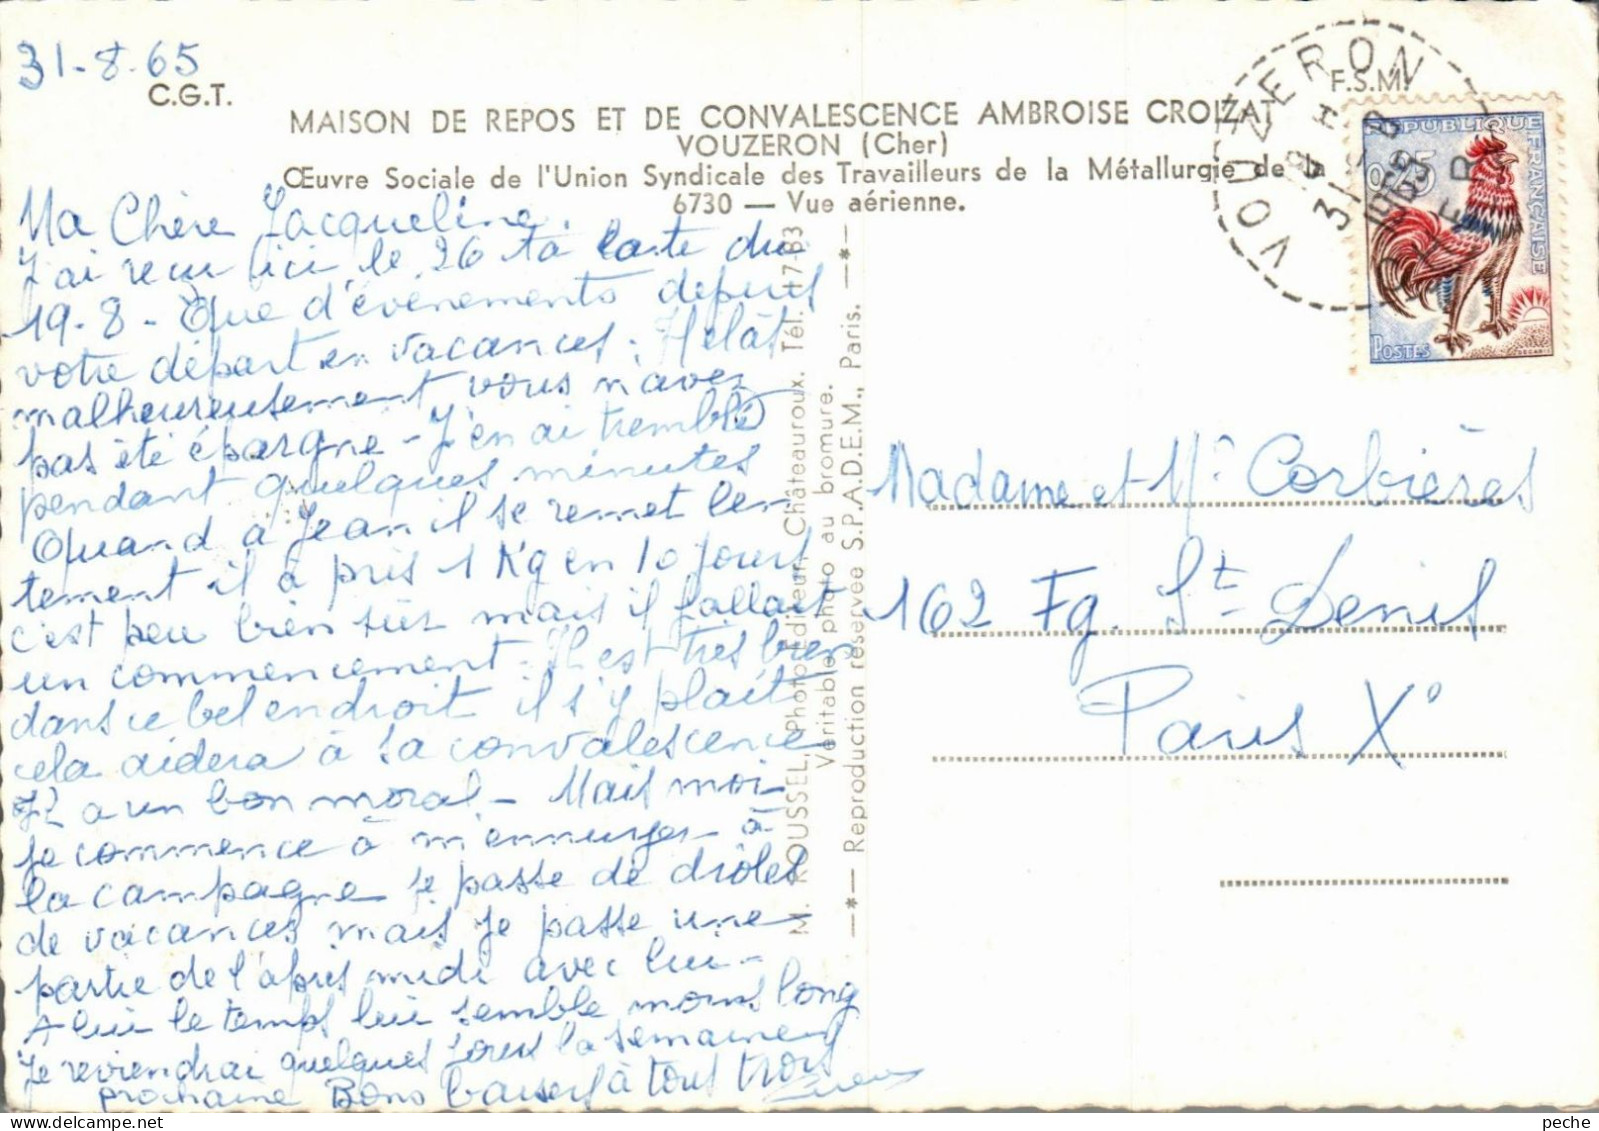 31-8-65
C.G.T.
F.S.M.
MAISON DE REPOS ET DE CONVALESCENCE AMBROISE CROIZAT
VOUZERON (Cher)
Œuvre Sociale de l'Union Syndicale des Travailleurs de la Métallurgie de la
6730 — Vue aérienne.
Ma Chère Jacqueline.
J'ai reçu ici le 26 ta carte du
19-8- Que d'évènements depuis
votre départ en vacances. Hélàs
malheureusement vous n'avez
pas été épargne - J'en ai tremblé
pendant quelques minutes
Quand a Jean il se remet len-
tement il a pris 1 Kg en 10 jours
c'est peu bien sûr mais il fallait
un commencement. Il est très bien
dans ce bel endroit il s'y plaît
cela aidera à sa convalescence
Il a un bon moral - Mais moi
je commence à m'ennuyer à
la campagne je passe de drôles
de vacances mais je passe une
partie de l'après midi avec lui-
A lui le temps lui semble moins long
Je reviendrai quelques jours la semaine
prochaine Bons baisers à tous trois
M. ROUSSEL, Photo-Editeur, Châteauroux. Tél. 17-83
Véritable photo au bromure.
—*— Reproduction réservée S.P.A.D.E.M., Paris. —*—
VOUZERON
CHER
REPUBLIQUE FRANÇAISE
0,25
POSTES
DECARIS
Madame et Mr Corbières
162 Fg. St Denis
Paris X°
peche